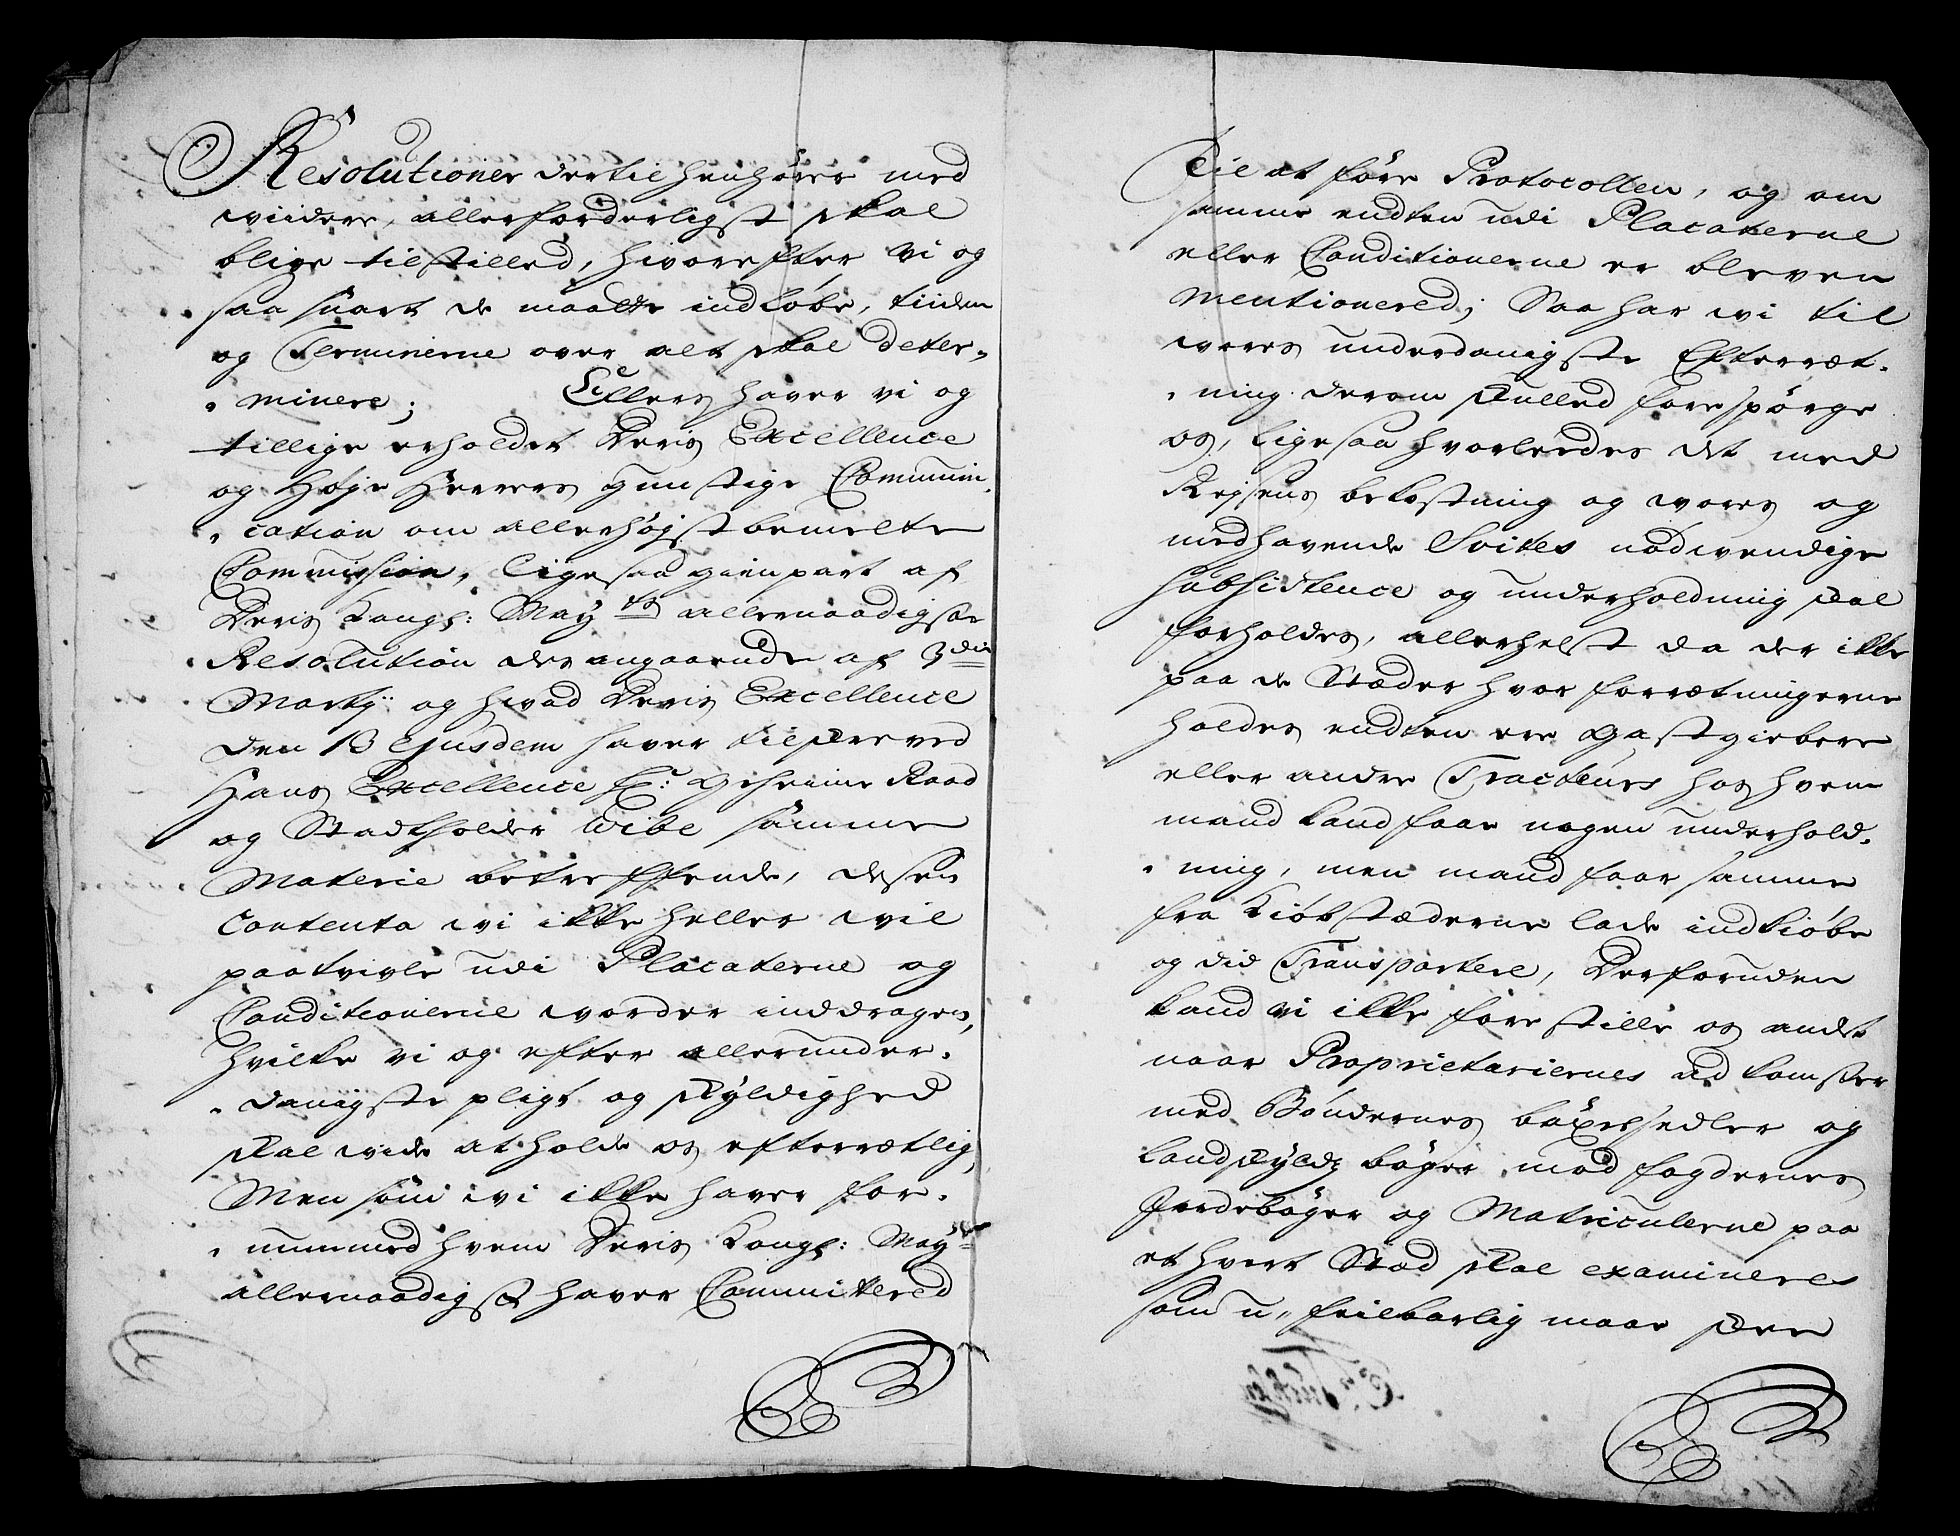 Resolutioner dertil henhörer med
wiidere, allerforderligst skal
blive tilstilled, hvorefter vi og
saa snart de maatte indløbe, tiiden
og Terminerne over alt skal deter-
minere; Ellers haver vi og
tillige erholdet Deris Excellence
og Høje Herrers gunstige Communi-
cation om allerhøjstbemelte
Commission, ligesaa gienpart af
Deris Kongl: May.ts allernaadigste
Resolution der angaaende af 3die
Martij og hvad Deris Excellence
den 13 Ejusdem haver tilskreved
Hans Excellence hr: geheime Raad
og Stadtholder Wibe samme
Materie betreffende, desen
Contenta wi ikke heller wil
paatvivle udi Placaterne og
Conditionerne worder inddragen,
hvilke vi og efter allerunder-
danigste pligt og skyldighed
skal wide at holde os efterrætlig,
Men som wi ikke haver for-
nummed hvem Deris Kongl: May.ts
allernaadigst haver Committered
Til at føre Protocollen, og om
samme endten udi Placaterne
eller Conditionerne er bleven
mentionered; Saa har wi til
wores underdanigste Efterræt-
ning derom skulled forespörge
os, ligesaa hvorleedes det med
Rejsens bekostning og wores og
medhavende Svites nødwendige
Subsistence og underholdning skal
forholdes, allerhelst da der ikke
paa de Stæder hvor forrætningerne
holdes endten ere gastgiebere
eller andre Tracteurs hos hvem
mand kand faae nogen underhold-
ning, men mand faar samme
fra Kiøbstæderne lade indkiøbe
og did Transportere, Derforuden
kand vi ikke forestille os andet
naar Proprietariernes adkomster
med Bøndernes bøxelsedler og
landskylds bøger mod fogdernes
Jordebøger og Matriculerne paa
et hvert Stæd skal examineres
som u-feilbarlig maae skee